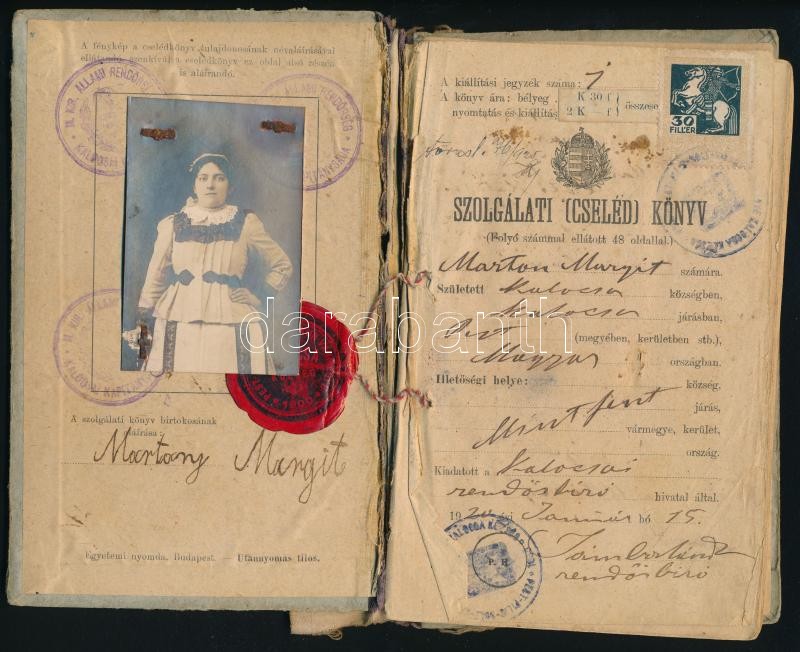 A fénykép a cselédkönyv tulajdonosának névaláírásával
ellátandó, azonkívül a cselédkönyv ez oldal alsó részén
is aláirandó.
M. KIR. ÁLLAMI RENDŐRSÉG
A szolgálati könyv birtokosának
aláírása:
Martony Margit
Egyetemi nyomda. Budapest. — Utánnyomás tilos.
A kiállítási jegyzék száma: 1
A könyv ára: bélyeg K 30 f
nyomtatás és kiállítás 2 K — f
összese
30
FILLÉR
SZOLGÁLATI (CSELÉD) KÖNYV
(Folyó számmal ellátott 48 oldallal.)
Marton Margit számára.
Született Kalocsa községben,
Kalocsa járásban,
Pest (megyében, kerületben stb.),
Magyar országban.
Illetőségi helye: község,
járás,
Mint fent vármegye, kerület,
ország.
Kiadatott a Kalocsai
rendőrbíró hivatal által.
1920 évi Január hó 15.
P. H.
rendőrbíró
darabanth